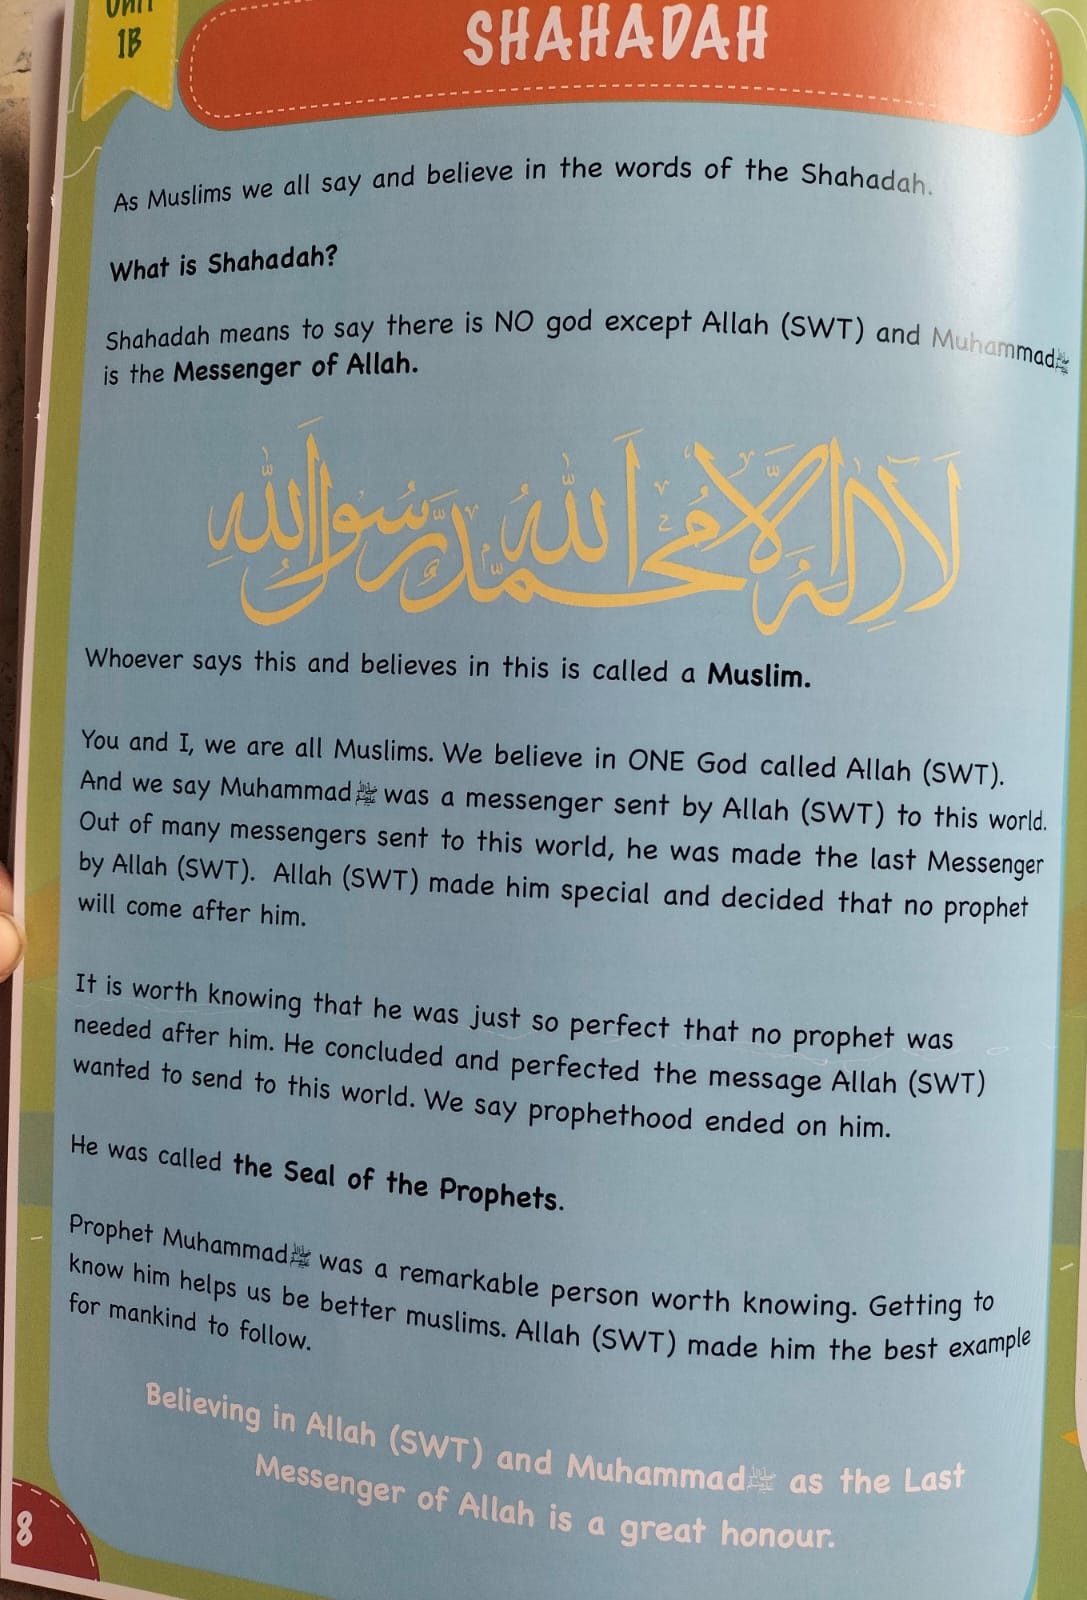 UNIT
1B
SHAHADAH
As Muslims we all say and believe in the words of the Shahadah.
What is Shahadah?
Shahadah means to say there is NO god except Allah (SWT) and Muhammadﷺ
is the Messenger of Allah.
لَا إِلٰهَ إِلَّا اللهُ مُحَمَّدٌ رَّسُولُ اللهِ
Whoever says this and believes in this is called a Muslim.
You and I, we are all Muslims. We believe in ONE God called Allah (SWT).
And we say Muhammadﷺ was a messenger sent by Allah (SWT) to this world.
Out of many messengers sent to this world, he was made the last Messenger
by Allah (SWT). Allah (SWT) made him special and decided that no prophet
will come after him.
It is worth knowing that he was just so perfect that no prophet was
needed after him. He concluded and perfected the message Allah (SWT)
wanted to send to this world. We say prophethood ended on him.
He was called the Seal of the Prophets.
Prophet Muhammadﷺ was a remarkable person worth knowing. Getting to
know him helps us be better muslims. Allah (SWT) made him the best example
for mankind to follow.
Believing in Allah (SWT) and Muhammadﷺ as the Last
Messenger of Allah is a great honour.
8